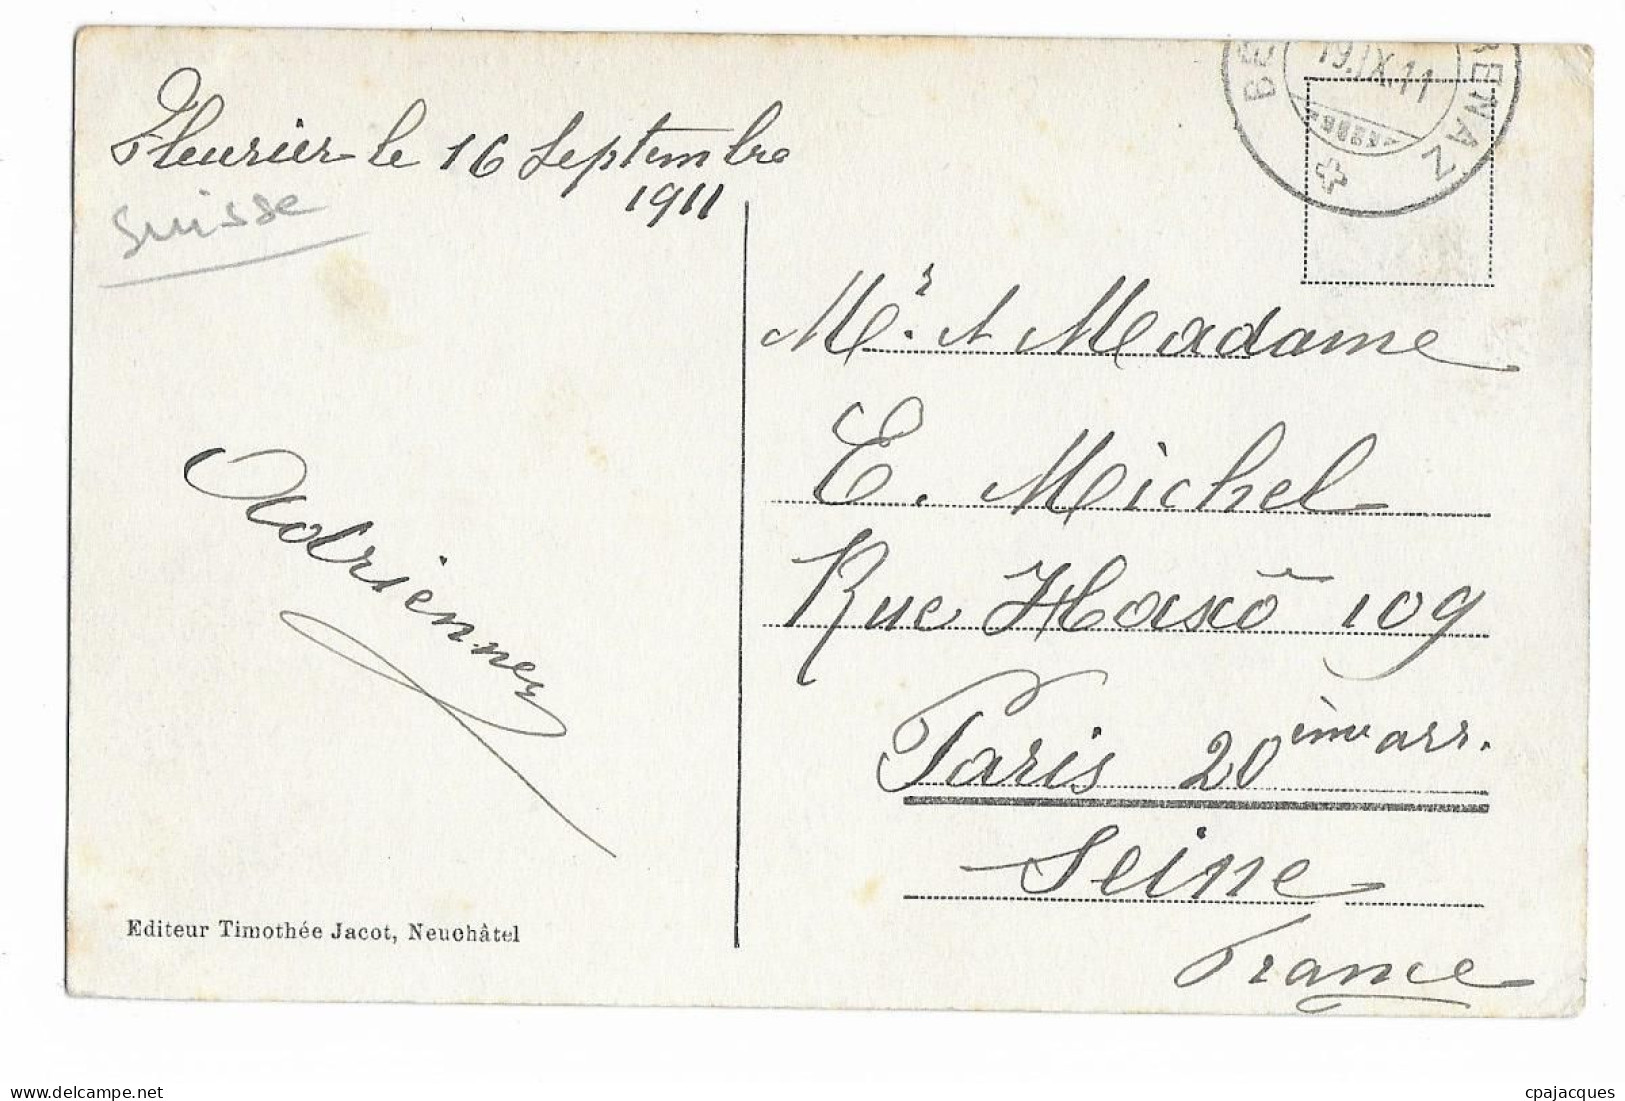 Fleurier le 16 Septembre
1911
Suisse
BE RENAZ
19.IX.11
Mr. et Madame
E. Michel
Rue Haxô 109
Paris 20ème arr.
Seine
France
Adrienne
Editeur Timothée Jacot, Neuchâtel
delcampe.net
cpajacques